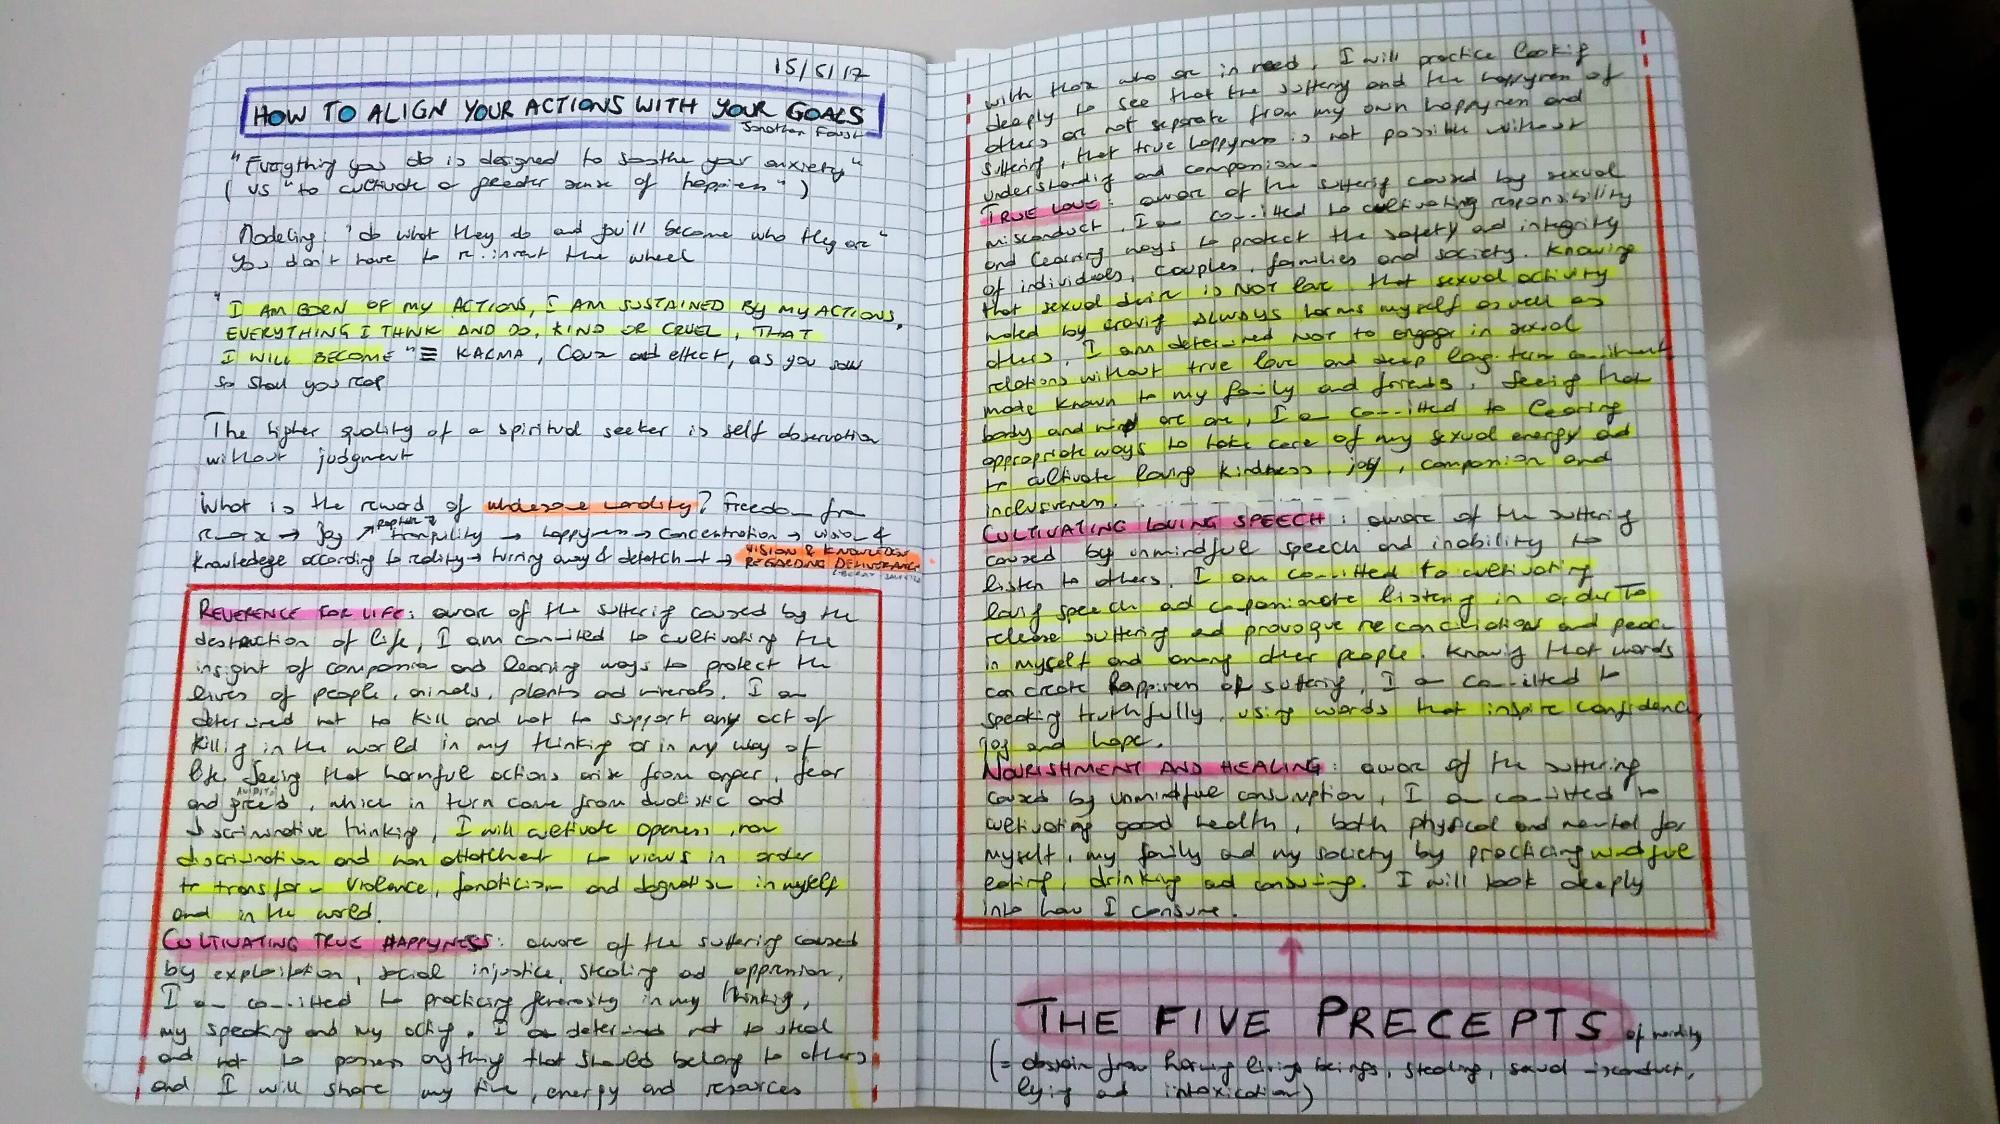 15/5/17
HOW TO ALIGN YOUR ACTIONS WITH YOUR GOALS
Jonathan Foust
"Everything you do is designed to soothe your anxiety"
(vs "to cultivate a greater sense of happiness")
Modeling: "do what they do and you'll become who they are"
You don't have to re.invent the wheel
"I AM BORN OF MY ACTIONS, I AM SUSTAINED BY MY ACTIONS,
EVERYTHING I THINK AND DO, KIND OR CRUEL, THAT
I WILL BECOME" ≡ KARMA, Cause and effect, as you sow
so shall you reap
The higher quality of a spiritual seeker is self observation
without judgment
What is the reward of wholesome morality? Freedom from
remorse → Joy ↗ rapture → tranquility → happyness → concentration → vision &
knowledege according to reality → turning away & detachment → VISION & KNOWLEDGE
REGARDING DELIVERANCE
REVERENCE FOR LIFE: aware of the suffering caused by the
destruction of life, I am commited to cultivating the
insight of compassion and learning ways to protect the
lives of people, animals, plants and minerals. I am
determined not to kill and not to support any act of
killing in the world in my thinking or in my way of
life. Seeing that harmful actions arise from anger, fear
and greed, which in turn come from dualistic and
discriminative thinking, I will cultivate openness, non
discrimination and non attachment to views in order
to transform violence, fanaticism and dogmatism in myself
and in the world.
CULTIVATING TRUE HAPPYNESS: aware of the suffering caused
by exploitation, social injustice, stealing and oppression,
I am committed to practicing generosity in my thinking,
my speaking and my acting. I am determined not to steal
and not to possess anything that should belong to others
and I will share my time, energy and resources
with those who are in need, I will practice looking
deeply to see that the suffering and the happyness of
others are not separate from my own happyness and
suffering, that true happyness is not possible without
understanding and compassion.
TRUE LOVE: aware of the suffering caused by sexual
misconduct, I am committed to cultivating responsibility
and learning ways to protect the safety and integrity
of individuals, couples, families and society. Knowing
that sexual desire is NOT love, that sexual activity
motivated by craving ALWAYS harms myself as well as
others, I am determined NOT to engage in sexual
relations without true love and deep long-term commitment
made known to my family and friends. Seeing that
body and mind are one, I am committed to learning
appropriate ways to take care of my sexual energy and
to cultivate loving kindness, joy, compassion and
inclusiveness.
CULTIVATING LOVING SPEECH: aware of the suffering
caused by unmindful speech and inability to
listen to others, I am committed to cultivating
loving speech and compassionate listening in order to
release suffering and provoque reconciliation and peace
in myself and among other people. Knowing that words
can create happiness or suffering, I am committed to
speaking truthfully, using words that inspire confidence,
joy and hope.
NOURISHMENT AND HEALING: aware of the suffering
caused by unmindful consumption, I am committed to
cultivating good health, both physical and mental for
myself, my family and my society by practicing mindful
eating, drinking and consuming. I will look deeply
into how I consume.
THE FIVE PRECEPTS of morality
(= abstain from harming living beings, stealing, sexual misconduct,
lying and intoxication)